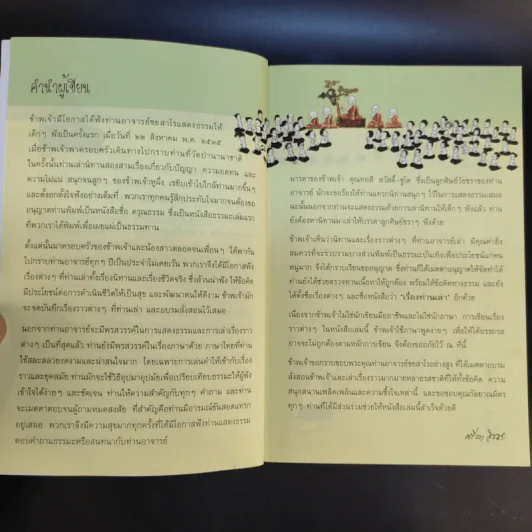 คำนำผู้เขียน
ข้าพเจ้ามีโอกาสได้ฟังท่านอาจารย์ชยสาโรแสดงธรรมให้
เด็กๆ ฟังเป็นครั้งแรก เมื่อวันที่ ๒๒ สิงหาคม พ.ศ. ๒๕๓๕
เมื่อข้าพเจ้าพาครอบครัวเดินทางไปกราบท่านที่วัดป่านานาชาติ
ในครั้งนั้นท่านเล่านิทานสองสามเรื่องเกี่ยวกับปัญญา ความอดทน และ
ความไม่แน่ สนุกจนลูกๆ ของข้าพเจ้าหูผึ่ง เขยิบเข้าไปใกล้ท่านมากขึ้นๆ
และตั้งอกตั้งใจฟังอย่างเต็มที่ พวกเราทุกคนรู้สึกประทับใจมากจนต้องขอ
อนุญาตท่านพิมพ์เป็นหนังสือชื่อ ดรุณธรรม ซึ่งเป็นหนังสือธรรมะเล่มแรก
ที่พวกเราได้พิมพ์เพื่อเผยแผ่เป็นธรรมทาน
ตั้งแต่นั้นมาครอบครัวของข้าพเจ้าและน้องสาวตลอดจนเพื่อนๆ ได้พากัน
ไปกราบท่านอาจารย์ทุกๆ ปีเป็นประจำไม่เคยเว้น พวกเราจึงได้มีโอกาสฟัง
เรื่องต่างๆ ที่ท่านเล่าทั้งเรื่องนิทานและเรื่องชีวิตจริง ซึ่งล้วนน่าฟัง ให้ข้อคิด
มีประโยชน์ต่อการดำเนินชีวิตให้เป็นสุข และพัฒนาตนให้ดีงาม ข้าพเจ้ามัก
จะจดบันทึกเรื่องราวต่างๆ ที่ท่านเล่า และอบรมสั่งสอนไว้เสมอ
นอกจากท่านอาจารย์จะมีพรสวรรค์ในการแสดงธรรมและการเล่าเรื่องราว
ต่างๆ เป็นที่สุดแล้ว ท่านยังมีพรสวรรค์ในเรื่องภาษาด้วย ภาษาไทยที่ท่าน
ใช้สละสลวยงดงามและน่าสนใจมาก โดยเฉพาะการเล่นคำให้เข้ากับเรื่อง
ราวและยุคสมัย ท่านมักจะใช้วิธีอุปมาอุปมัยเพื่อเปรียบเทียบธรรมะให้ผู้ฟัง
เข้าใจได้ง่ายๆ และชัดเจน ท่านให้ความสำคัญกับทุกๆ คำถาม และ
จะเมตตาตอบจนผู้ถามหมดสงสัย ที่สำคัญคือท่านมีอารมณ์ขันสอดแทรก
อยู่เสมอ พวกเราจึงมีความสุขมากทุกครั้งที่ได้มีโอกาสฟังท่านแสดงธรรม
ตอบคำถามธรรมะหรือสนทนากับท่านอาจารย์
มารดาของข้าพเจ้า คุณทอสี สวัสดิ์-ชูโต ซึ่งเป็นลูกศิษย์วัยชราของท่าน
อาจารย์ มักจะขอร้องให้ท่านแทรกนิทานสนุกๆ ไว้ในการแสดงธรรมเสมอ
ฉะนั้นนอกจากท่านจะแสดงธรรมด้วยการเล่านิทานให้เด็กๆ ฟังแล้ว ท่าน
ยังต้องหานิทานมาเล่าให้บรรดาลูกศิษย์ชราๆ ฟังด้วย
ข้าพเจ้าเห็นว่านิทานและเรื่องราวต่างๆ ที่ท่านอาจารย์เล่า มีคุณค่ายิ่ง
สมควรที่จะรวบรวมบางส่วนพิมพ์เป็นธรรมะบันเทิงเพื่อประโยชน์แก่คน
หมู่มาก จึงได้กราบเรียนขออนุญาต ซึ่งท่านก็ได้เมตตาอนุญาตให้จัดทำได้
ท่านยังได้ช่วยตรวจทานเนื้อหาให้ถูกต้อง พร้อมให้ข้อคิดทางธรรม และยัง
ได้ตั้งชื่อเรื่องต่างๆ และชื่อหนังสือว่า "เรื่องท่านเล่า" อีกด้วย
เนื่องจากข้าพเจ้าไม่ใช่นักเขียนมืออาชีพและไม่ใช่นักภาษา การเขียนเรื่อง
ราวต่างๆ ในหนังสือเล่มนี้ ข้าพเจ้าใช้ภาษาพูดง่ายๆ เพื่อให้ได้อรรถรส
อาจจะไม่ถูกต้องตามหลักการเขียน จึงต้องขออภัยไว้ ณ ที่นี้
ข้าพเจ้าขอกราบขอบพระคุณท่านอาจารย์ชยสาโรอย่างสูง ที่ได้เมตตาอบรม
สั่งสอนข้าพเจ้าและเล่าเรื่องราวมากมายหลายรสชาติให้ทั้งข้อคิด ความ
สนุกสนานเพลิดเพลินและความซึ้งใจเหล่านี้ และขอขอบคุณกัลยาณมิตร
ทุกๆ ท่านที่ได้มีส่วนร่วมช่วยให้หนังสือเล่มนี้สำเร็จด้วยดี